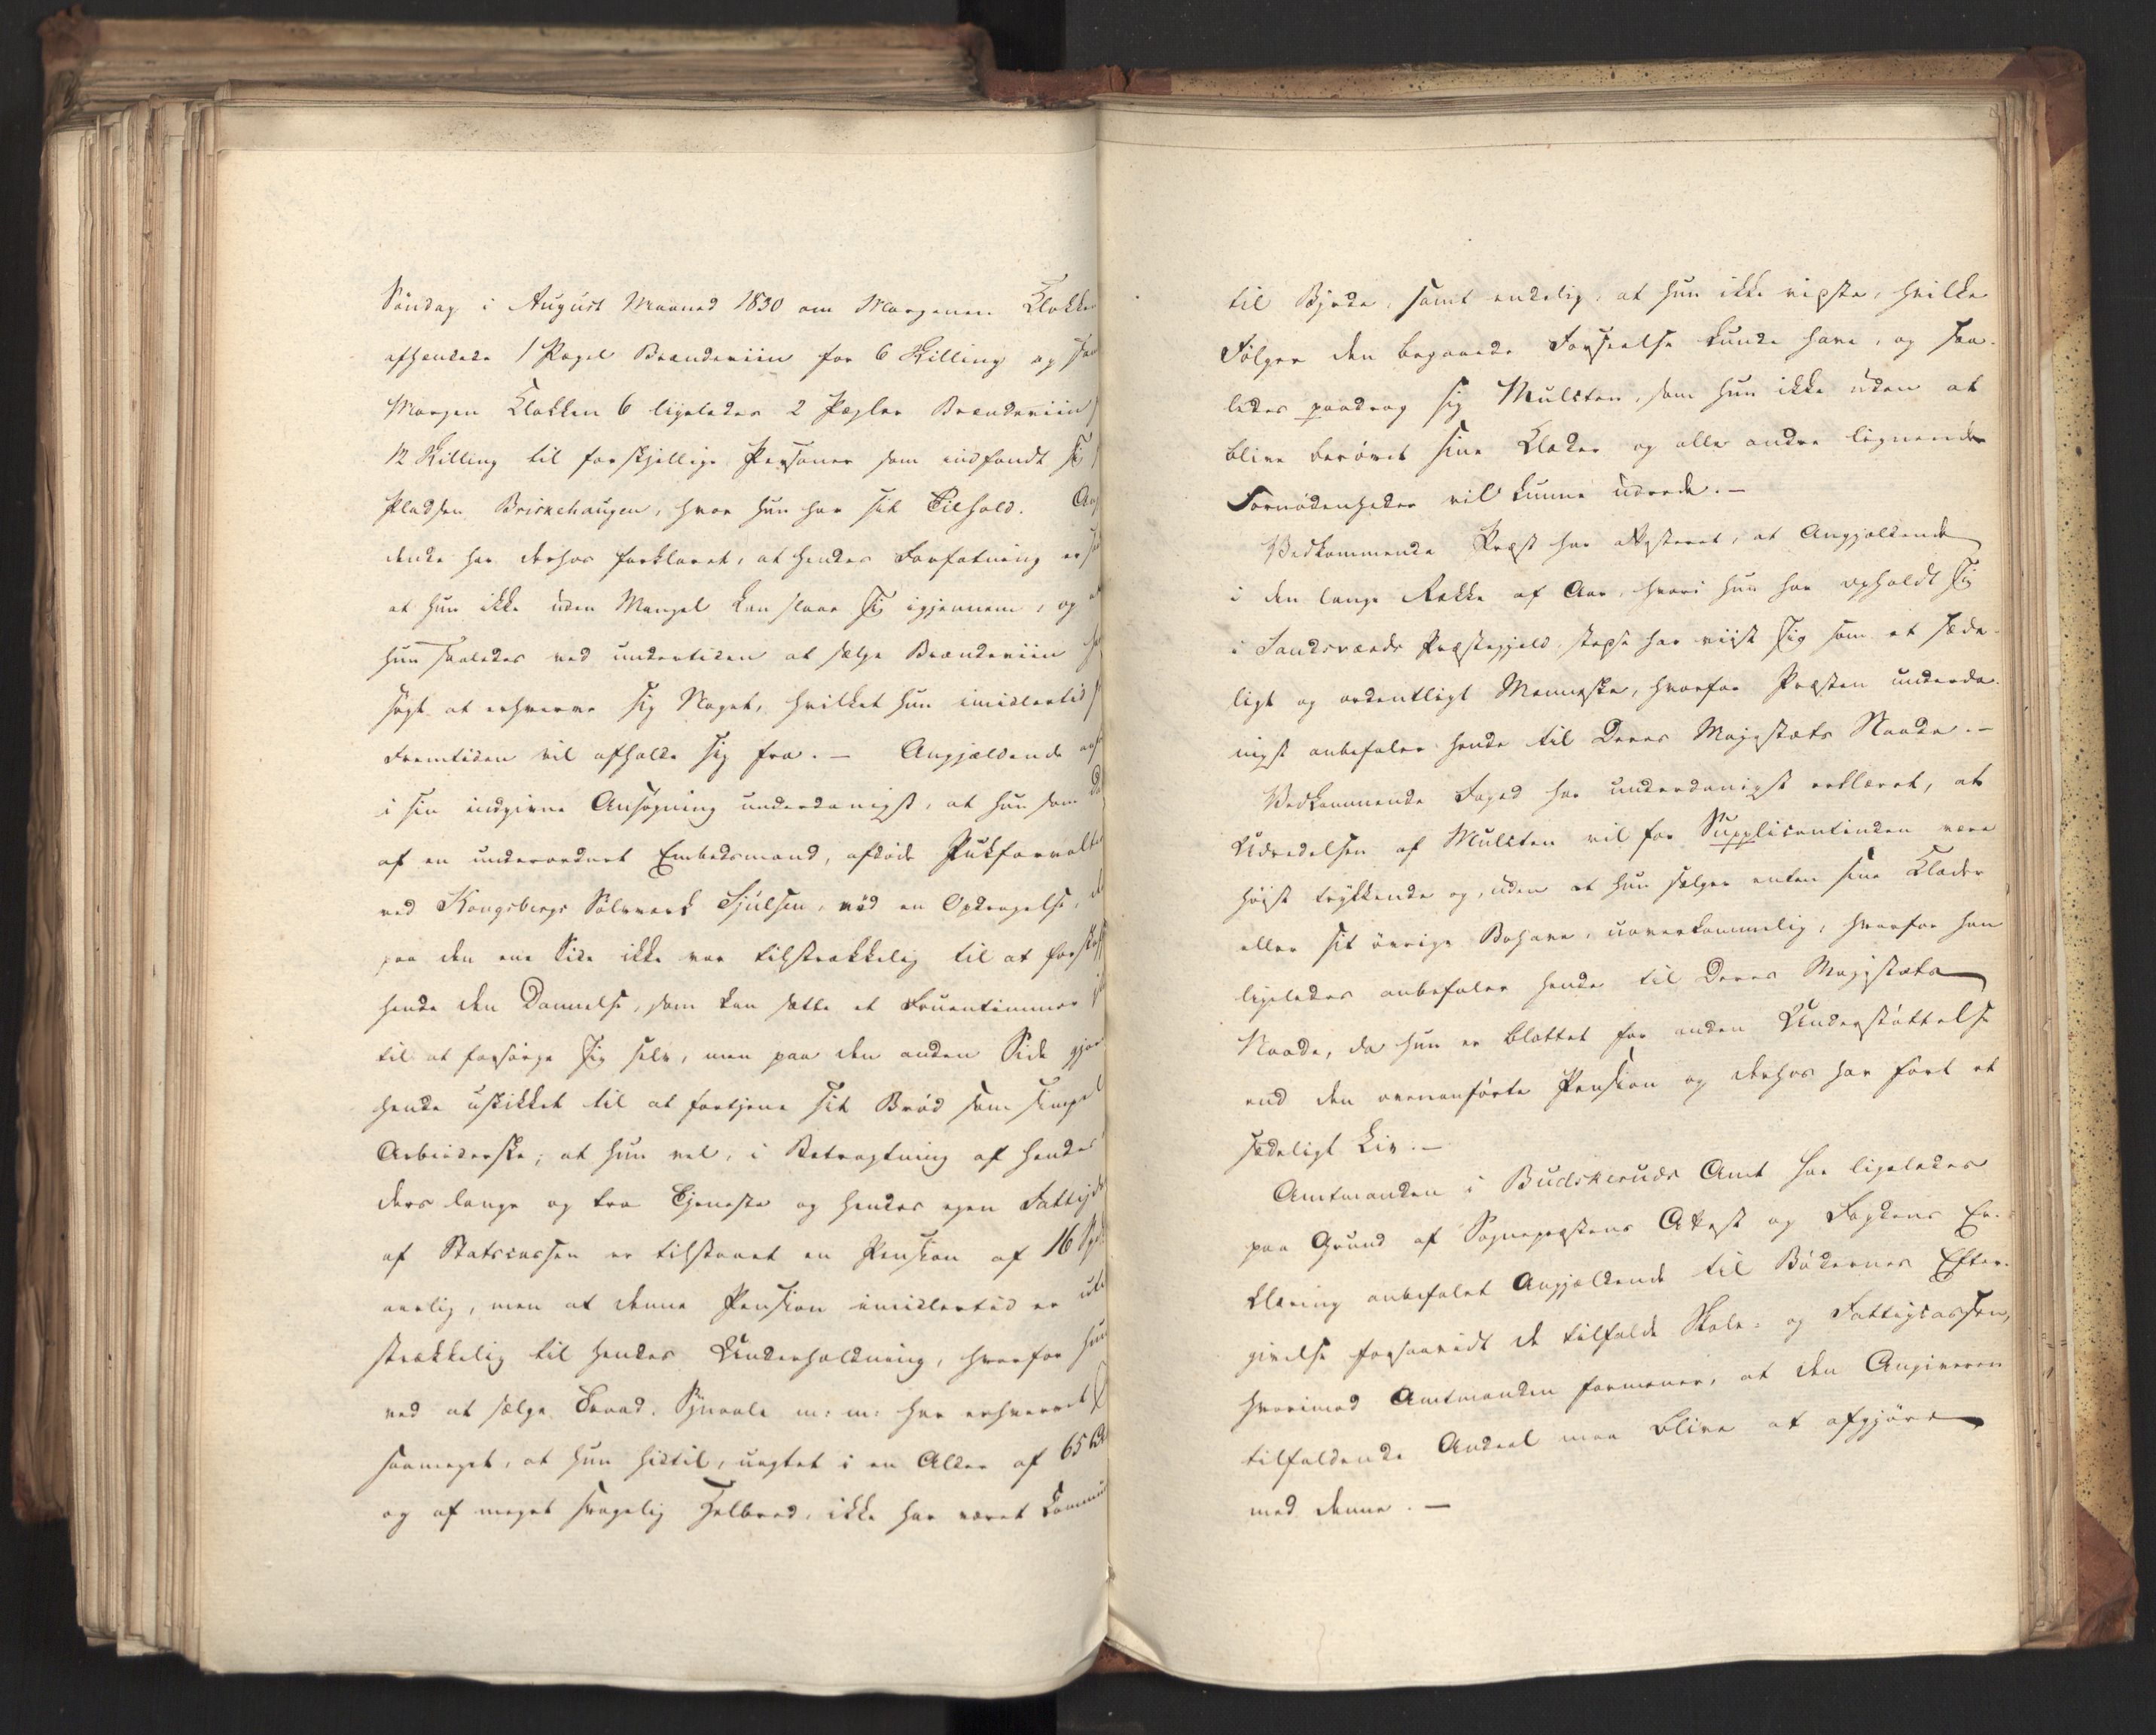 Søndag i August Maaned 1830 om Morgenen Klokken
afhændede 1 Pægel Brændeviin for 6 Skilling og
Morgen Klokken 6 ligeledes 2 Pægler Brændeviin
12 Skilling til forskjellige Personer som indfandt
Pladsen Briskehaugen, hvor hun har sit Tilhold.
dende har derhos forklaret, at hendes Forfatning er
at hun ikke uden Mangel kan slaae sig igjennem, og
hun saaledes ved undertiden at sælge Brændeviin
søgt at erhverve sig Noget, hvilket hun imidlertid
Fremtiden vil afholde sig fra. — Angjældende
i sin indgivne Ansøgning underdanigst, at hun som
af en underordnet Embedsmand, afdøde Pukforvalter
ved Kongsbergs Sølvværk Tjulsen, nød en Opdragelse,
paa den ene Side ikke var tilstrækkelig til at
hende den Dannelse, som kan sætte et Fruentimmer
til at forsørge sig selv, men paa den anden Side
hende uskikket til at fortjene sit Brød som simpel
Arbeiderske; at hun vel, i Betragtning af hendes
ders lange og tro Tjeneste og hendes egen
af Statscassen er tilstaaet en Pension af 16
aarlig, men at denne Pension imidlertid er
strækkelig til hendes Underholdning, hvorfor hun
ved at sælge Traad, Synaale m: m: har erhvervet
saameget, at hun hidtil, uagtet i en Alder af 65
og af meget svagelig Helbred, ikke har været
til Byrde, samt endelig, at hun ikke vidste, hvilke
Følger den begaaede Forseelse kunde have, og saa-
ledes paadrog sig Mulcten, som hun ikke uden at
blive berøvet sine Klæder og alle andre lignende
Fornødenheder vil kunne udrede. —
Vedkommende Præst har attesteret, at Angjældende
i den lange Række af Aar, hvori hun har opholdt sig
i Sandsværds Præstegjeld stedse har viist sig som et sæde-
ligt og ordentligt Menneske, hvorfor Præsten underda-
nigst anbefaler hende til Deres Majestæts Naade. —
Vedkommende Foged har underdanigst erklæret, at
Udredelsen af Mulcten vil for Supplicantinden være
høist trykkende og, uden at hun sælger enten sine Klæder
eller sit øvrige Bohave, uoverkommelig, hvorfor han
ligeledes anbefaler hende til Deres Majestæts
Naade, da hun er blottet for anden Understøttelse
end den ovenanførte Pension og derhos har ført et
sædeligt Liv. —
Amtmanden i Budskeruds Amt har ligeledes
paa Grund af Sognepræstens Attest og Fogdens Er-
klæring anbefalet Angjældende til Bødernes Efter-
givelse forsaavidt de tilfalde Skole- og Fattigcassen,
hvorimod Amtmanden formener, at den Angiveren
tilfaldende Andeel maa blive at afgjøre
med denne. —